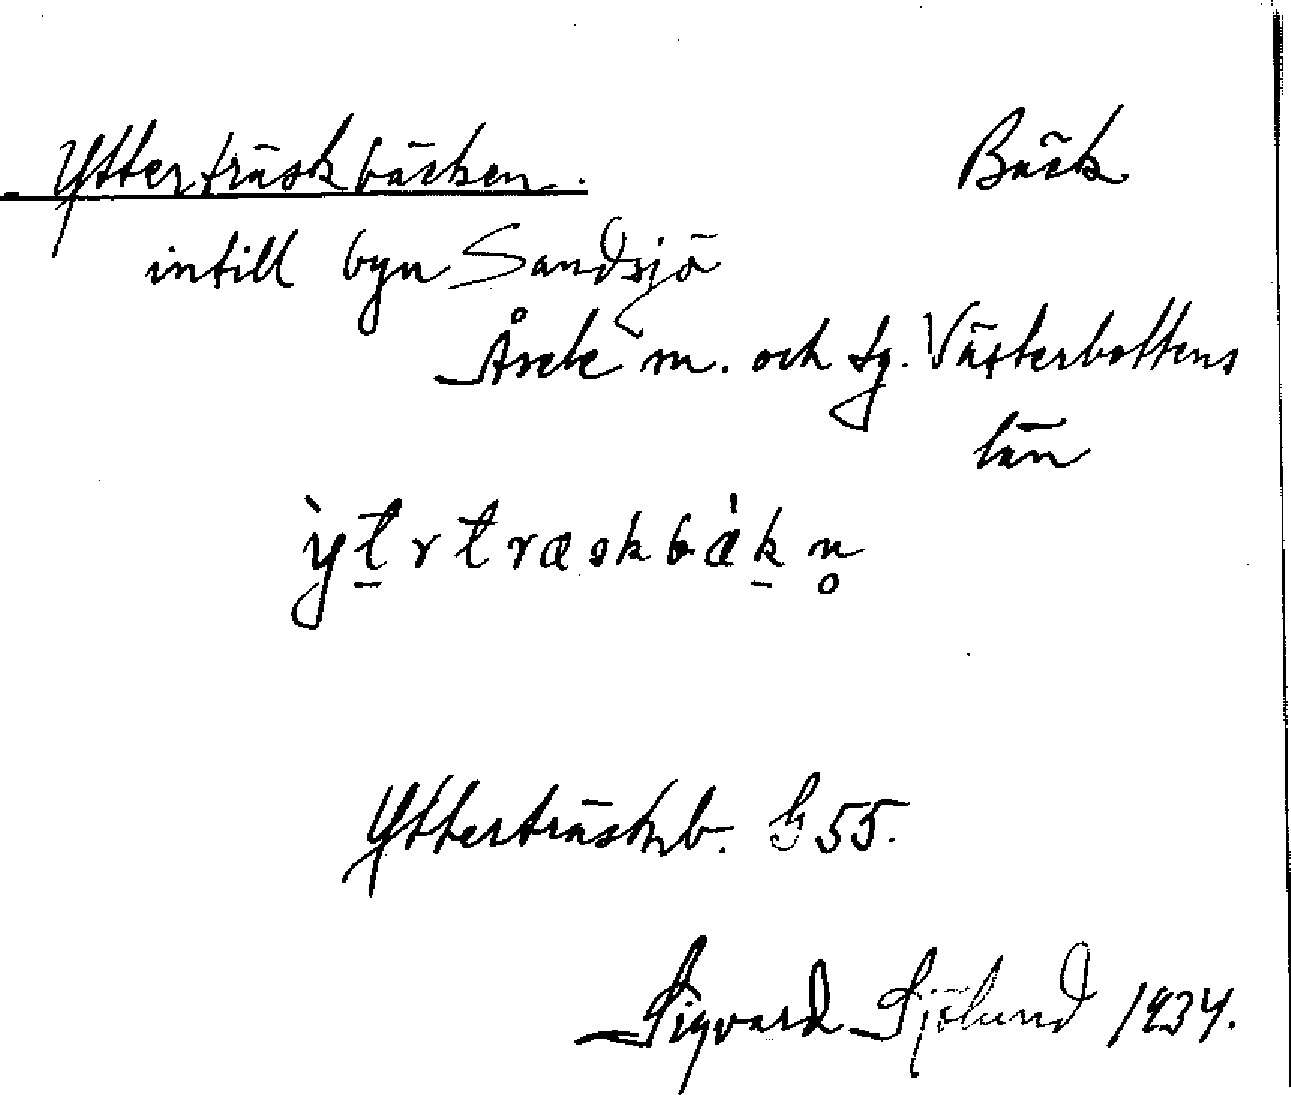 Ytterträskbäcken. Bäck
intill byn Sandsjö
Åsele m. och tg. Västerbottens
län
ỳt̲rtræskbæ̀k̲n̥
Ytterträskb. G 55.
Sigvard Sjölund 1934.